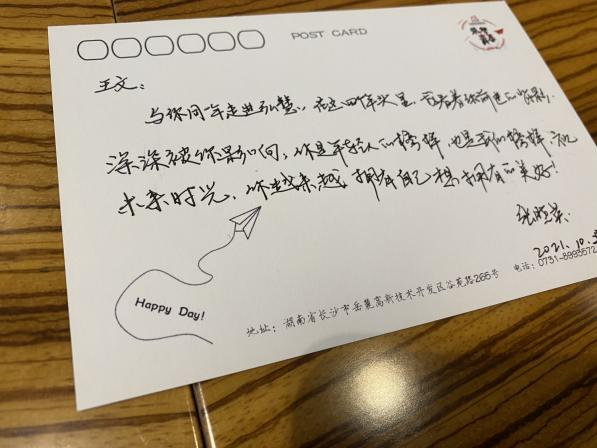 POST CARD
王文：
与你同年走进弘慧，在这四年次里，看着你前进的背影
深深被你影响，你是年轻人的榜样，也是我们榜样，祝
未来时光，你越来越拥有自己想拥有的美好！
2021.10.
Happy Day!
地址：湖南省长沙市岳麓高新技术开发区谷苑路265号 电话：0731-8893572